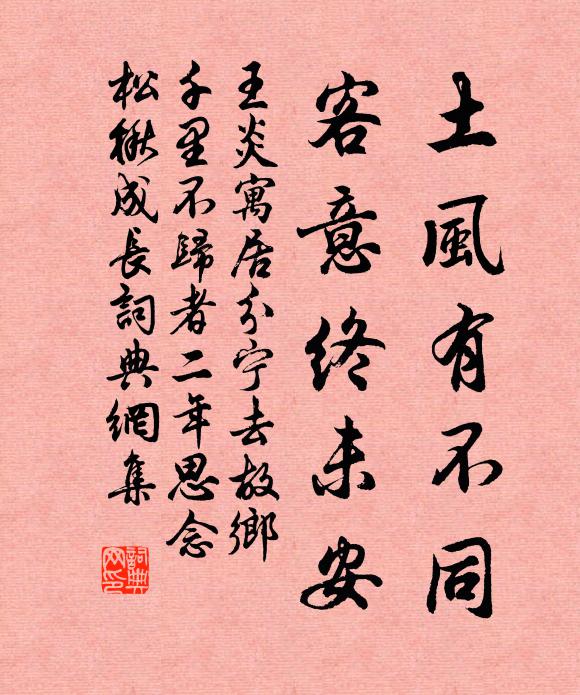 土風有不同
客意終未安
王炎寓居分宁去故鄉
千里不歸者二年思念
松楸成長詞典網集
詞典网印